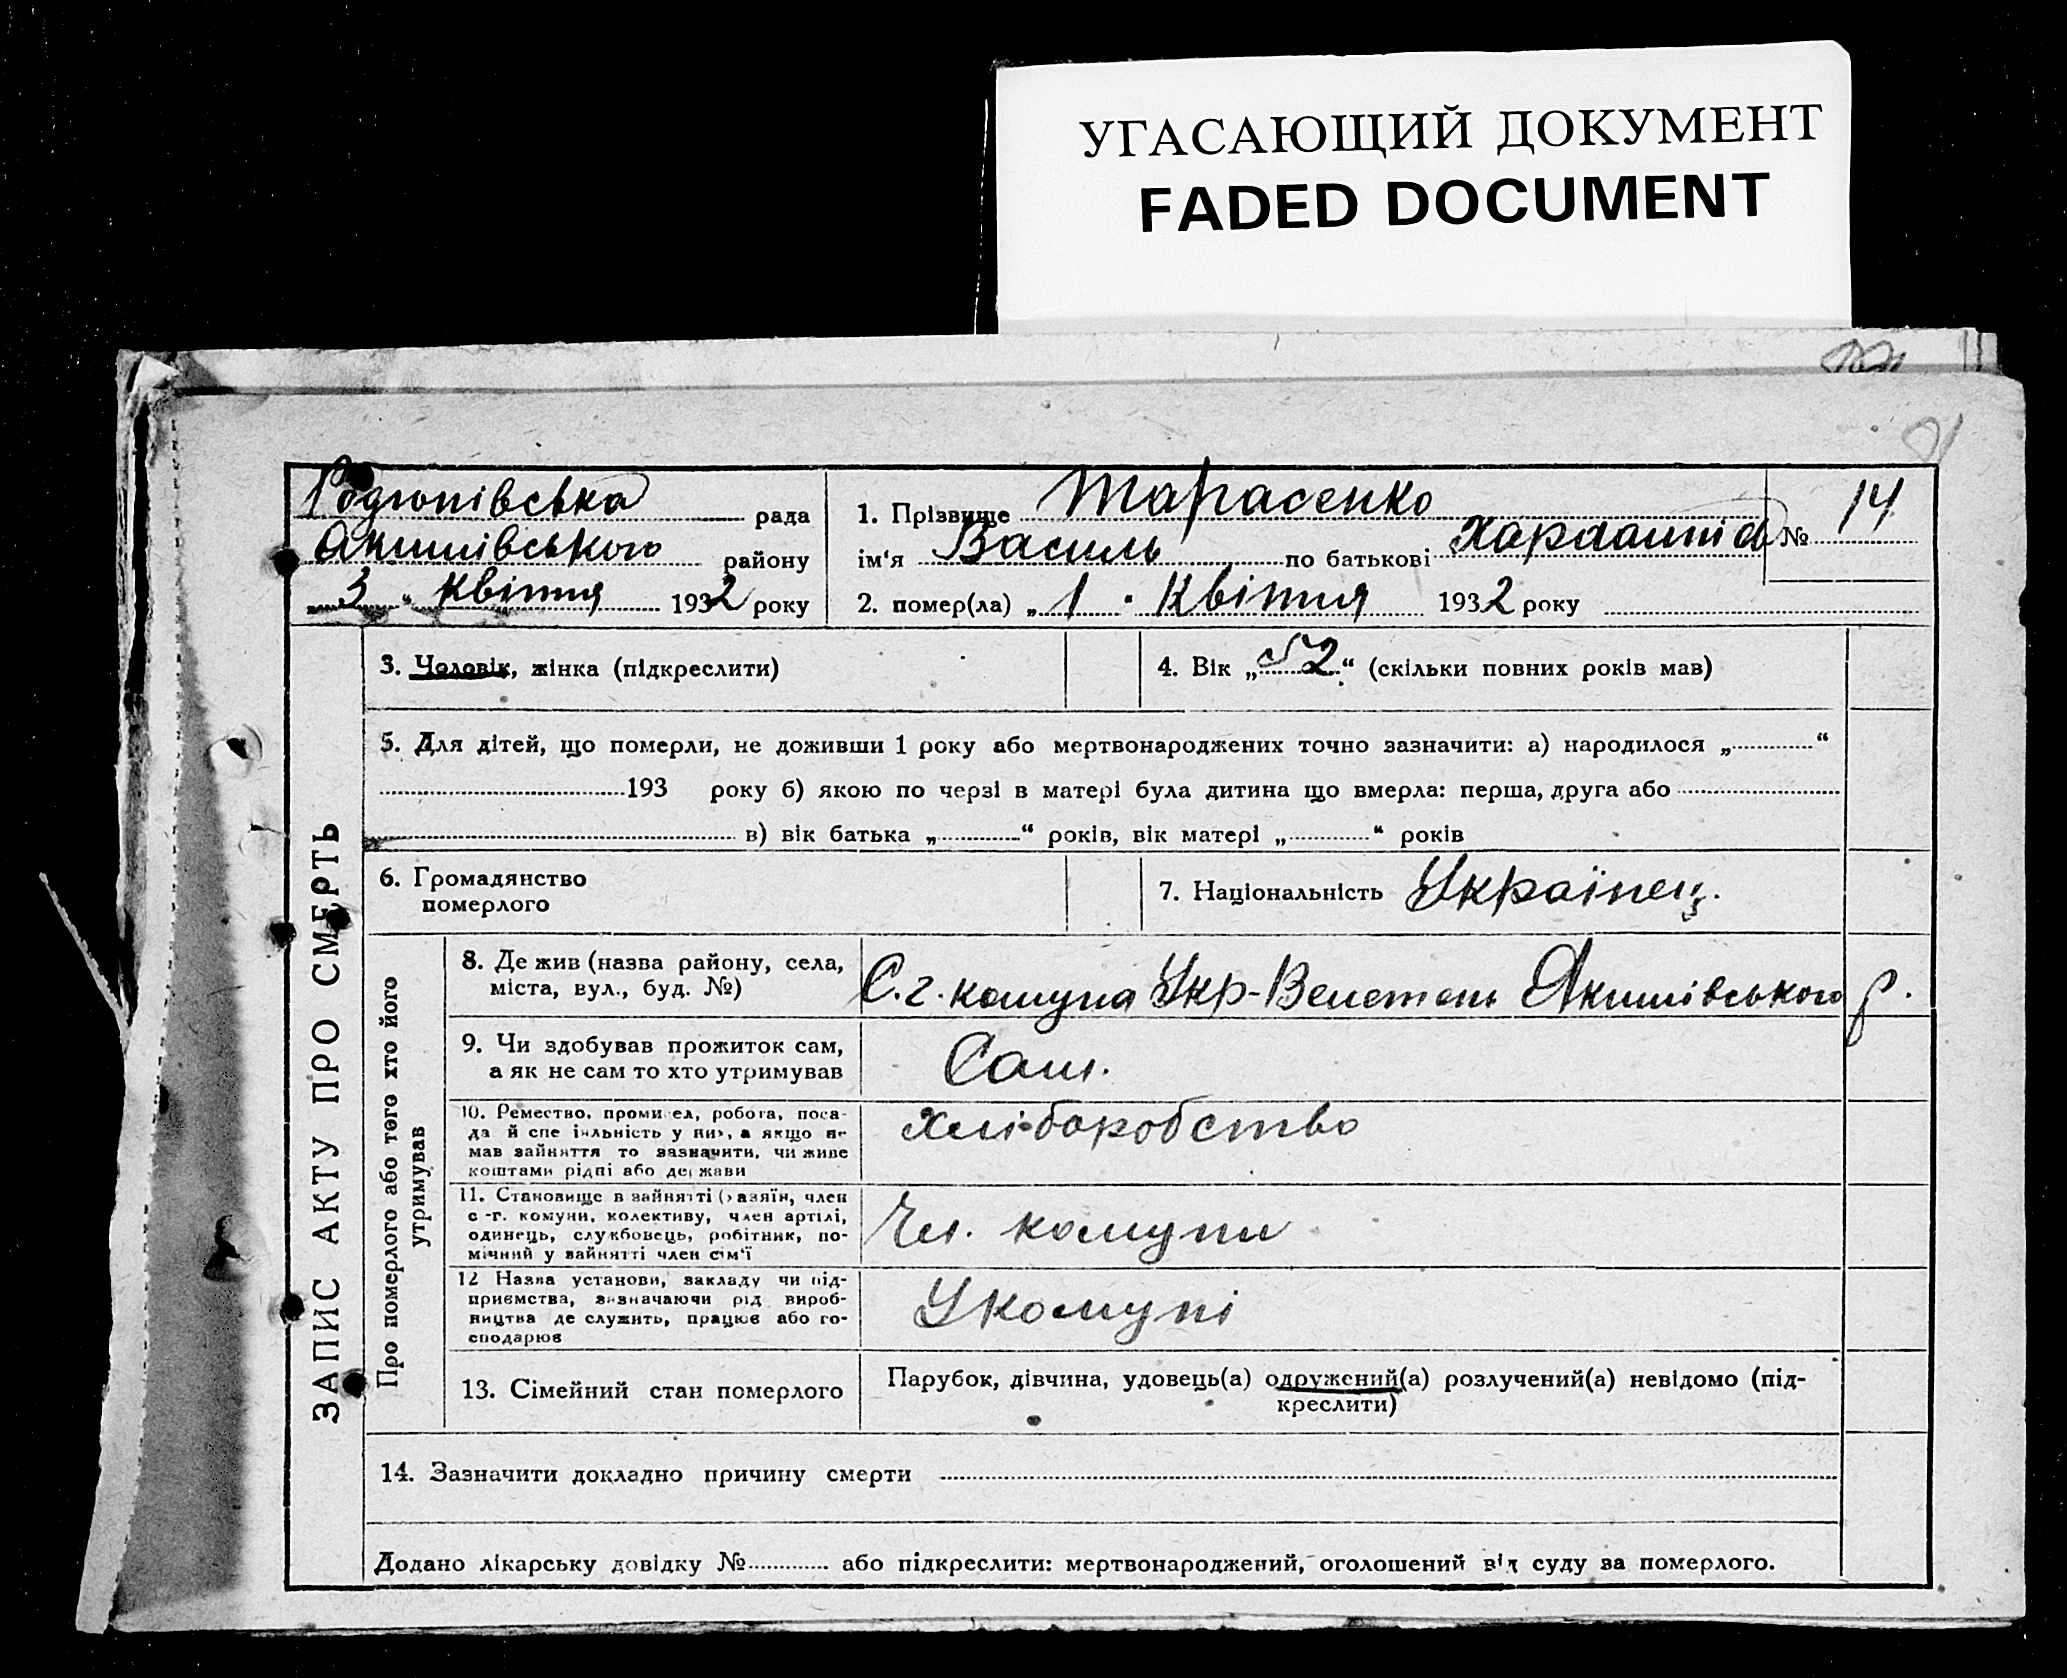 УГАСАЮЩИЙ ДОКУМЕНТ
FADED DOCUMENT
Родіонівська рада
Якимівського району
„ 3 “ квітня 1932 року
1. Прізвище Тарасенко
ім'я Василь по батькові Харлампієв
№ 14
2. помер(ла) „ 1 “ Квітня 1932 року
3. Чоловік, жінка (підкреслити)
4. Вік „ 52 “ (скільки повних років мав)
5. Для дітей, що померли, не доживши 1 року або мертвонароджених точно зазначити: а) народилося „ “
193 року б) якою по черзі в матері була дитина що вмерла: перша, друга або
в) вік батька „ “ років, вік матері „ “ років
6. Громадянство
померлого
7. Національність Українец.
ЗАПИС АКТУ ПРО СМЕРТЬ
Про померлого або того хто його
утримував
8. Де жив (назва району, села,
міста, вул., буд. №)
С.г. комуна Укр- Якимівського р.
9. Чи здобував прожиток сам,
а як не сам то хто утримував
Сам.
10. Ремество, промисел, робота, поса-
да й спеціяльність у них, а якщо не
мав зайняття то зазначити, чи живе
коштами рідні або держави
Хліборобство
11. Становище в зайнятті (хазяїн, член
с-г. комуни, колективу, член артілі,
одинець, службовець, робітник, по-
мічний у зайнятті член сім'ї
Чл. комуни
12 Назва установи, закладу чи під-
приємства, зазначаючи рід вироб-
ництва де служить, працює або го-
сподарює
У комуні
13. Сімейний стан померлого
Парубок, дівчина, удовець(а) одружений(а) розлучений(а) невідомо (під-
креслити)
14. Зазначити докладно причину смерти
Додано лікарську довідку № або підкреслити: мертвонароджений, оголошений від суду за померлого.